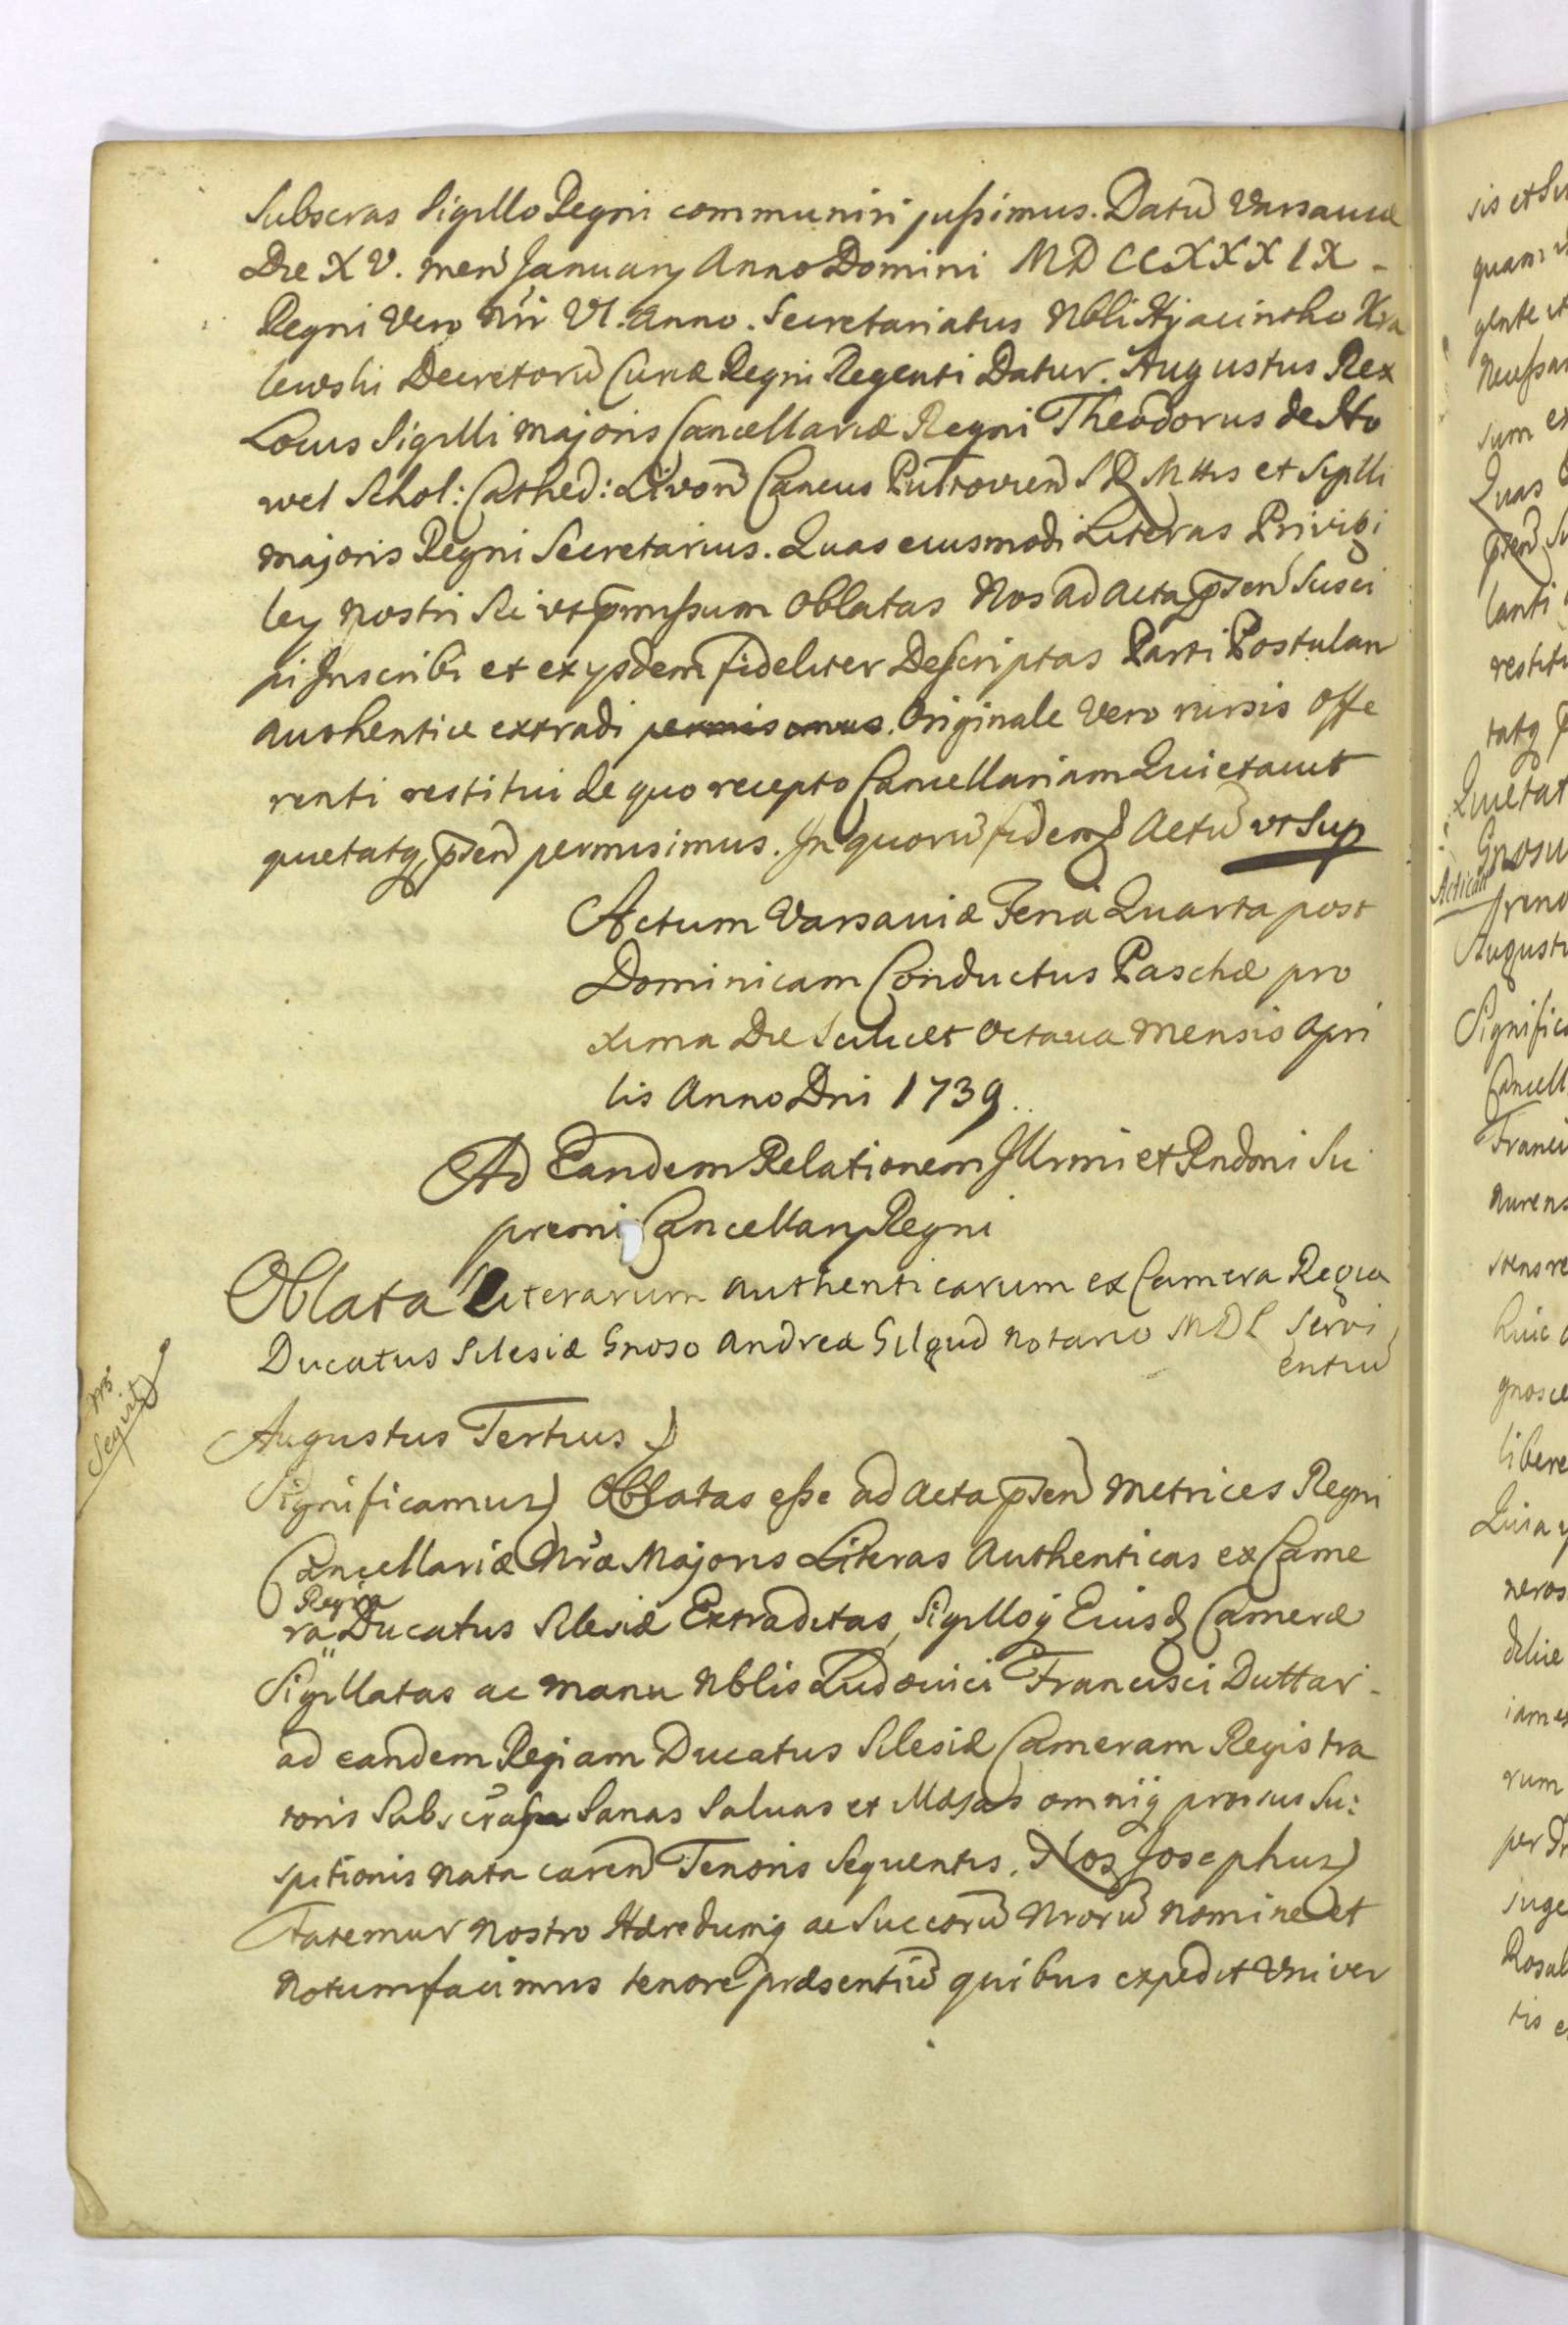 Subscras Sigillo Regni communiri jussimus. Datũ Varsaviæ
Die XV. men̄ January Anno Domini MDCCXXXIX -
Regni Vero Nri VI. Anno. Secretariatus Nbli Hyacintho Kra
lewski Decretorũ Curiæ Regni Regenti Datur. Augustus Rex
Locus Sigilli majoris Cancellariæ Regni Theodorus de Ho
wel Schol: Cathed: Livon̄ Cancus Pultovien̄ S R Mttis et Sigilli
majoris Regni Secretarius. Quas eiusmodi Literas Privigi
ley nostri Sic ut p̄missum Oblatas Nos ad Acta p̄sen̄ Susci
pi Inscribi et ex ysdem fideliter Descriptas Parti Postulan
authentice extradi permisimus. Originale Vero rursis offe
renti restitui de quo recepto Cancellariam Quietavit
quietatq p̄sen̄ permisimus. In quorũ fidem Actũ ut Sup
Actum Varsaviæ Feria Quarta post
Dominicam Conductus Paschæ pro
xima Die Scilicet Octava Mensis Apri
lis Anno Dni 1739.
Ad Eandem Relationem Illrmi et Rndmi Su
premi Cancellary Regni
Oblata Literarum authenticarum ex Camera Regia
Ducatus Silesiæ Gnoso Andreæ Gilgud Notario MDL Servi
entiũ
Augustus Tertius
Significamus Oblatas esse ad Acta p̄sen̄ Metrices Regni
Cancellariæ Nræ Majoris Literas Authenticas ex Came
Regia
ra Ducatus Silesiæ Extraditas, Sigilloq Eiusd Cameræ
Sigillatas ac manu Nblis Ludovici Francisci Duttar -
ad eandem Regiam Ducatus Silesiæ Cameram Registra
toris Sanas Salvas et omniq prorsus Su:
spitionis nata caren̄ Tenoris Sequentis. Nos Josephus
Fatemur nostro Hæredumq ac Succorũ Nrorũ nomine et
Notum facimus tenore præsentiũ quibus expedit Univer